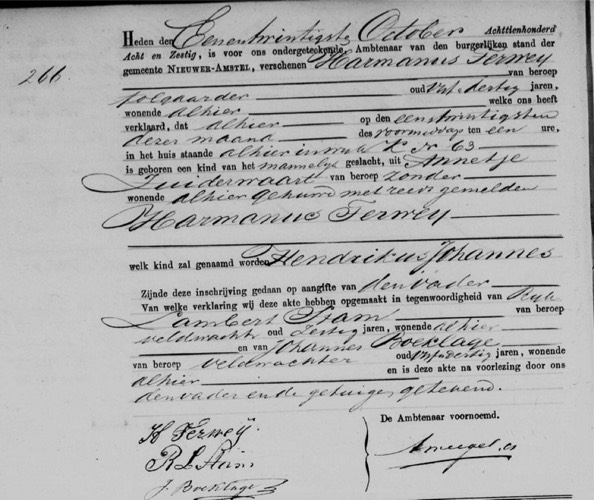 266
Heden den Eenentwintigste October Achttienhonderd
Acht en Zestig, is voor ons ondergeteekende, Ambtenaar van den burgerlijken stand der
gemeente NIEUWER-AMSTEL, verschenen Harmanus Terwey
van beroep
tolgaarder oud Vijf dertig jaren,
wonende alhier welke ons heeft
verklaard, dat alhier op den eenentwintigsten
dezer maand des voormiddags ten een ure,
in het huis staande alhier in wijk Nr 63
is geboren een kind van het mannelijk geslacht, uit Annetje
Zuiderwaart van beroep zonder
wonende alhier gehuwd met reeds gemelden
Harmanus Terwey
welk kind zal genaamd worden Hendrikus Johannes
Zijnde deze inschrijving gedaan op aangifte van den vader
Van welke verklaring wij deze akte hebben opgemaakt in tegenwoordigheid van Ryk
Lambert Stam van beroep
veldwachter oud Zestig jaren, wonende alhier
en van Johannes Boeklage
van beroep veldwachter oud dertig jaren, wonende
alhier en is deze akte na voorlezing door ons
den vader en de getuigen geteekend.
De Ambtenaar voornoemd.
H Terweÿ.
R L Stam
J. Boeklage